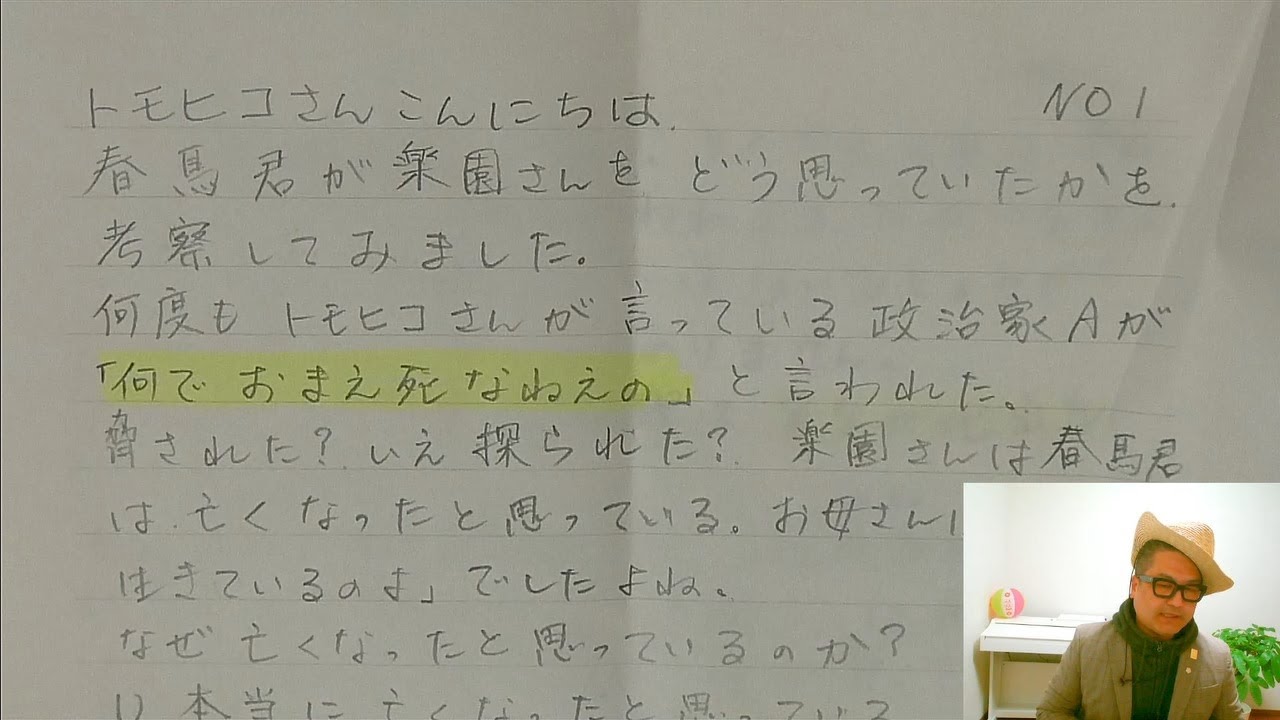 トモヒコさんこんにちは、 NO1
春馬君が楽園さんを どう思っていたかを、
考察してみました。
何度も トモヒコさんが 言っている 政治家Aが
「何で おまえ死なねえの」と言われた。
脅された? いえ 探られた? 楽園さんは春馬君
は、亡くなったと思っている。お母さん
生きているのよ」でしたよね。
なぜ 亡くなったと思っているのか?
1) 本当に亡くなったと思っている